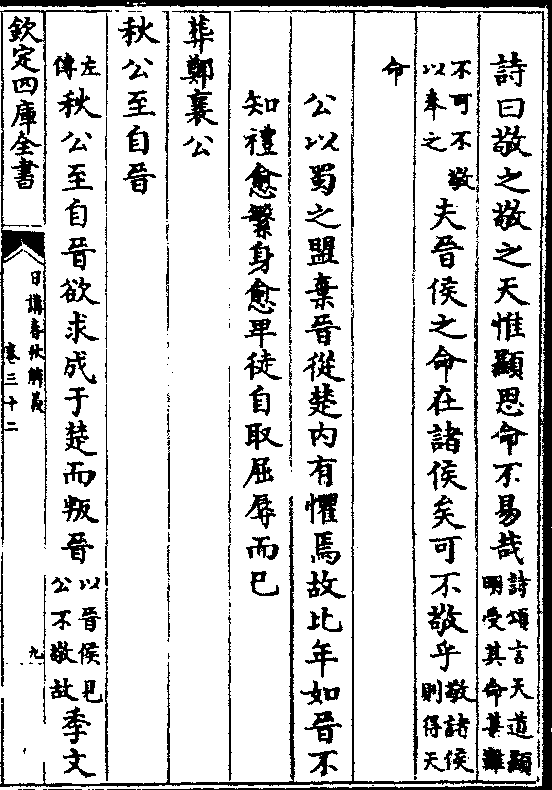 詩曰敬之敬之天惟顯思命不易哉詩頌言天道顯明受其命甚難
不可不敬以奉之夫晉侯之命在諸侯矣可不敬乎敬諸侯則得天
命
公以蜀之盟棄晉從楚内有懼焉故比年如晉不
知禮愈繁身愈卑徒自取屈辱而已
葬鄭襄公
秋公至自晉
左傳秋公至自晉欲求成于楚而叛晉以晉侯見公不敬故季文
欽定四庫全書
日講春秋解義
卷三十二
九